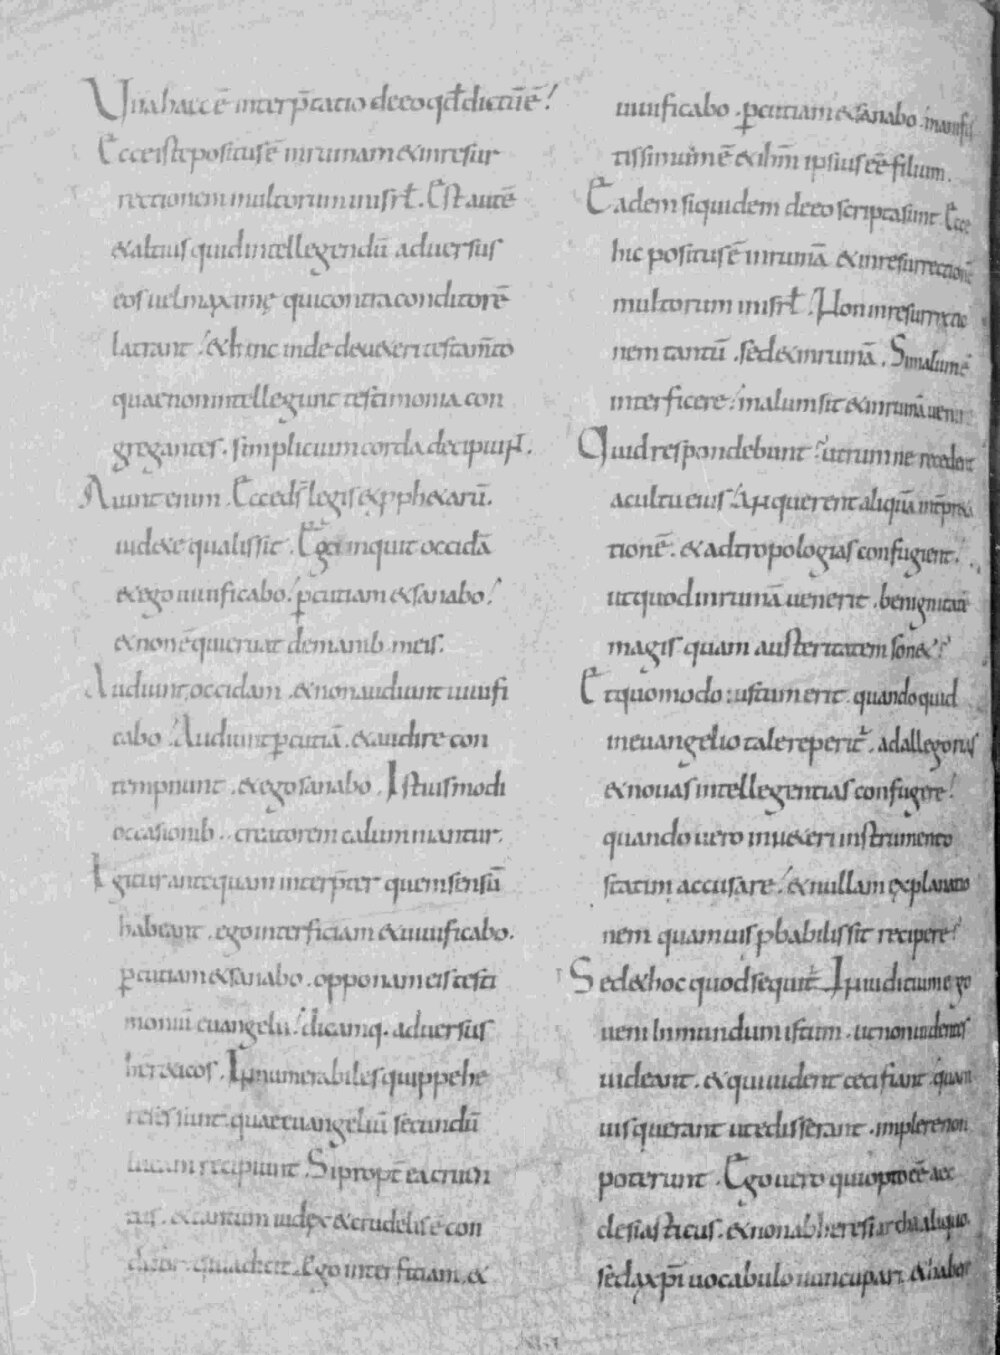 Una haec ē interp̄tatio de eo qđ dictū ē!
Ecce iste positus ē in ruinam & in resur
rectionem multorum in isrł. Est autē
& altius quid intellegendū adversus
eos vel maximę qui contra conditorē
latrant & hinc inde de veteri testam̄to
quae non intellegunt testimonia con
gregantes. simplicium corda decipiunt.
Aiunt enim. Ecce ds̄ legis & pphetarū.
videte qualis sit. Ego inquit occidā
& ego vivificabo. ꝑcutiam & sanabo!
& non ē qui eruat de manib. meis.
Audiunt, occidam. & non audiunt vivifi
cabo. Audiunt ꝑcutiā. & audire con
tempnunt. & ego sanabo. Istiusmodi
occasionib. creatorem calumniantur.
Igitur antequam interp̄ter quem sensū
habeant. ego interficiam & vivificabo.
ꝑcutiam & sanabo. opponam eis testi
moniū evangelii. dicamq. adversus
hereticos. Innumerabiles quippe he
reses sunt. quae evangeliū secundū
lucam recipiunt. Si propt̄ ea cruen
tus. & tantum iudex & crudelis ē con
ditor. quia dicit. Ego interficiam. &
vivificabo. ꝑcutiam & sanabo. manifes
tissimum ē & ihm̄ ipsius eē filium.
Eadem siquidem de eo scripta sunt. Ecce
hic positus ē in ruinā & in resurrectionē
multorum in isrł. Non in resurrectio
nem tantū. sed & in ruinā. Si malum ē
interficere. malum sit & in ruinā venire
Quid respondebunt? utrumne recedent
a cultu eius. An querent aliquā int̄preta
tionē. & ad tropologias confugient.
ut quod in ruinā venerit. benignitatē
magis quam austeritatem son&?
Et quomodo iustum erit. quando quid
in evangelio tale reperit̄. ad allegorias
& novas intellegentias confugere!
quando vero in veteri instrumento
statim accusare. & nullam explanatio
nem quamvis pbabilis sit recipere?
Sed & hoc quod sequit̄. In iudicium ego
veni in mundum istum. ut non videntes
videant. & qui vident ceci fiant. quam
vis querant ut edisserant. implere non
poterunt. Ego vero qui opto eē aec
clesiasticus. & non ab heresiarcha aliquo.
sed a xp̄i vocabulo nuncupari. & habere